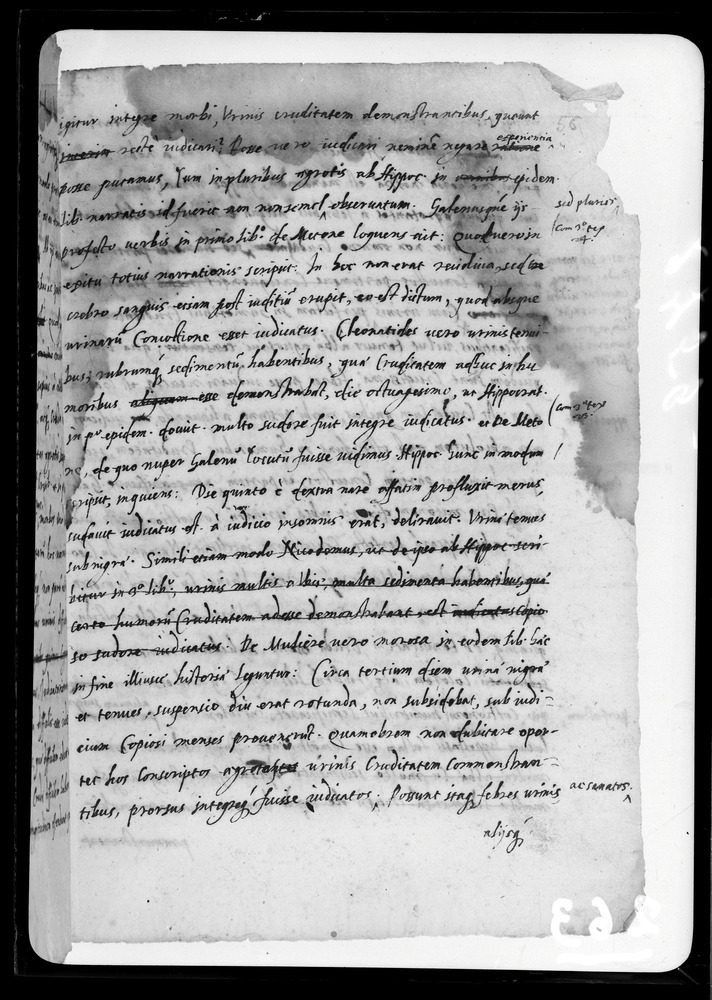 igitur integre morbi, Urinis cruditatem demonstrantibus, queunt
56
experientia
recte iudicari? Posse vero iudicari neminē negare ratione
posse putamus, Cum in pluribus ægrotis ab Hippoc. in omnibus epidem.
lib. narratis id fuerit non nonsemel observatum. Galenusque ijs
sed pluries
profecto verbis in primo lib.º de Metone loquens ait: Quod vero in
(com 3º tex
exitu totius narrationis scripsit. In hoc non erat recidiva, sed
crebro sanguis etiam post iuditiū erupit, eo est dictum, quod absque
urinarū Concoctione esset iudicatus. Cleonactides vero urinis tenui-
bus, rubrumq sedimentū habentibus, quæ Cruditatem adhuc in hu
moribus aliquam esse demonstrabat, die octuagesimo, ut Hippocrat.
in pº epidem. docuit. multo sudore fuit integre iudicatus. et De Meto
(com 3º tex
ne, de quo nuper Galenū locutū fuisse vidimus Hippoc. hunc in modum
scripsit, inquiens: Die quinto è dextra nare affatim profluxit merus,
sudavit iudicatus est. à iudicio insomnis erat, deliravit. Urinæ tenues
subnigræ. Simili etiam modo Nicodemus, ut de ipso ab Hippoc. scri-
bitur in 3º lib.º, urinis multis albis, multa sedimenta habentibus, quæ
certo humorū Cruditatem adesse demonstrabant, est iudicatus copio
so sudore iudicatus: De Muliere vero morosa in eodem lib. hæc
in fine illiusce historiæ leguntur: Circa tertium diem urinæ nigræ
et tenues, suspensio diu erat rotunda, non subsidebat, sub iudi=
cium Copiosi menses provenerūt. Quamobrem non dubitare opor-
tet hos Conscriptos ægrotantes urinis Cruditatem Commonstran=
tibus, prorsus integreq fuisse iudicatos. Possunt itaq febres urinis
ac sanatos.
alijsq
263